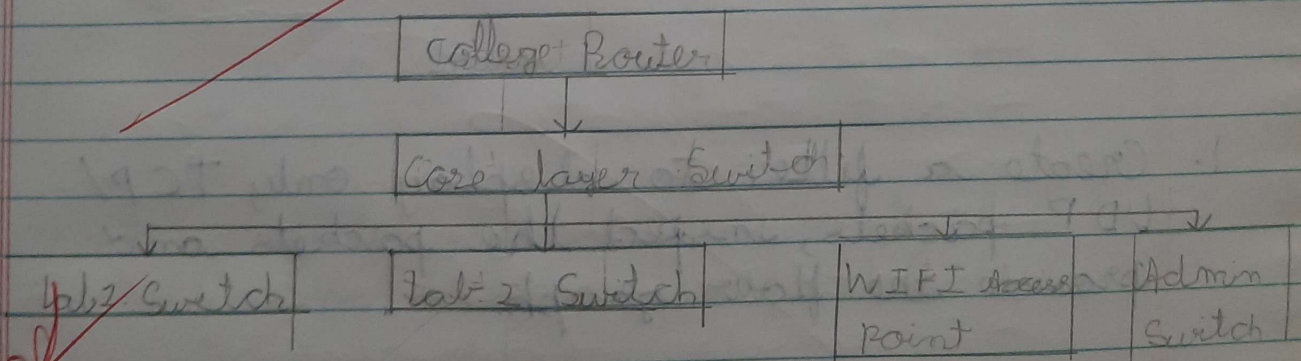 College Router
Core layer Switch
Switch
Lab-2 Switch
WIFI Access
Point
Admin
Switch